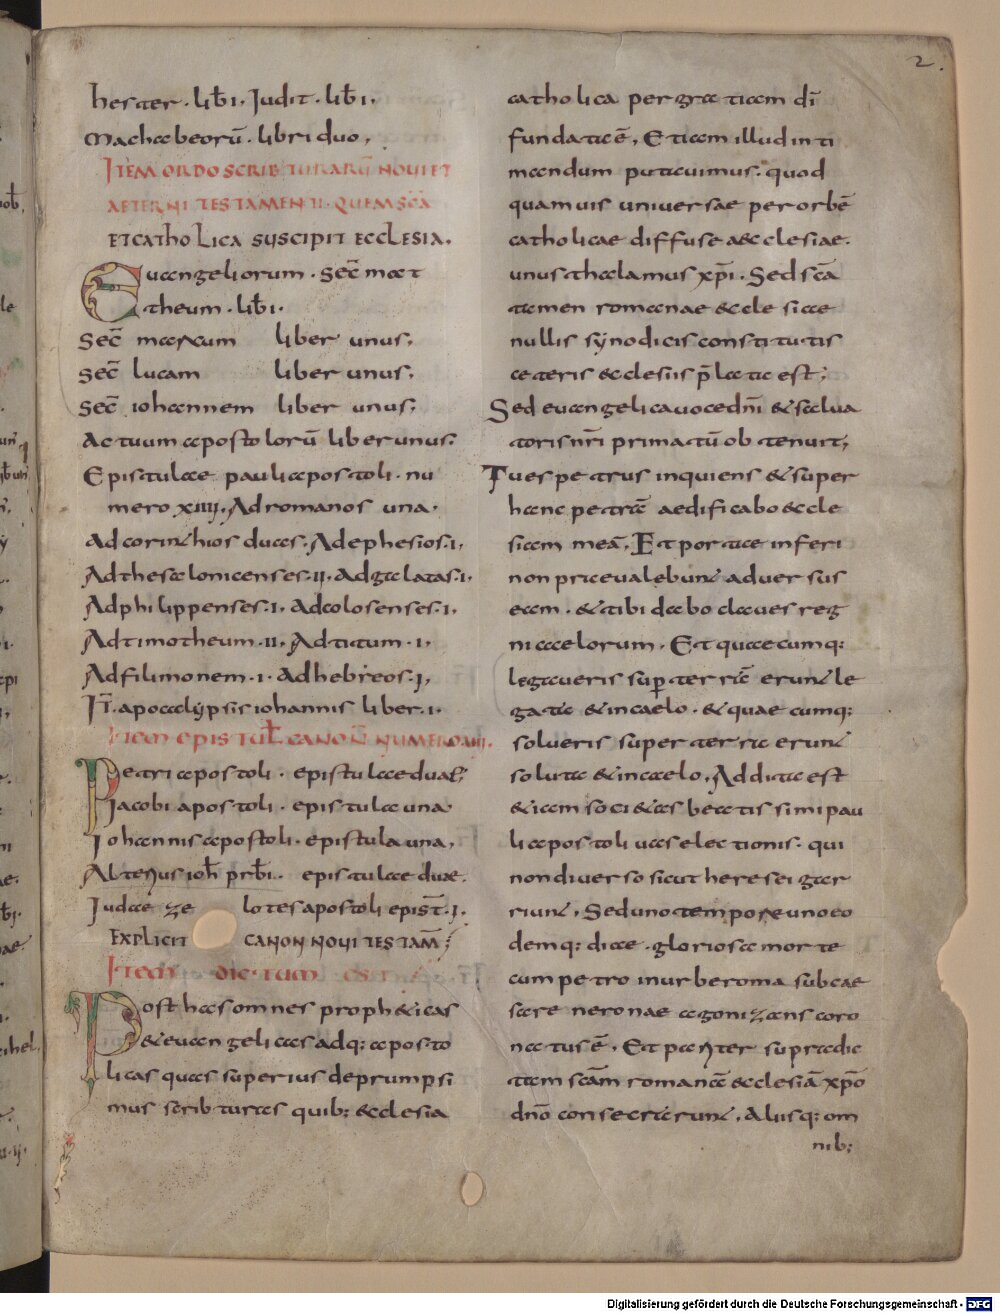 2.
hester · lib̄ i, Judit · lib̄ i,
Machabeorū · libri duo,
ITEM ORDO SCRIBTURARŪ NOVI ET
AETERNI TESTAMENTI · QUEM SC̄A
ET CATHOLICA SUSCIPIT ECCLESIA.
Euangeliorum · sec̄ mat
theum · lib̄ i ·
sec̄ marcum liber unus;
sec̄ lucam liber unus;
sec̄ iohannem liber unus;
Actuum apostolorū liber unus;
Epistulae pauli apostoli · nu
mero xiiij, Ad romanos una ·
ad corinthios duas · Ad ephesios · i,
Ad thesalonicenses · ii · ad galatas · i,
Ad philippenses · i, ad colosenses · i,
Ad timotheum · ii, Ad titum · i,
Ad filimonem · i · ad hebreos · j,
It̄ · apocalypsis iohannis liber · i ·
Item epistul̄ canon̄ numero viii.
Petri apostoli · epistulae duae;
Jacobi apostoli · epistula una
Iohannis apostoli · epistula una,
Alterius ioh̄ prb̄i · epistulae duae.
Judae ze lotes apostoli epist̄ · j,
EXPLICIT CANON NOVI TESTAM̄;
Item dictum est
Post has omnes propheticas
et euangelicas adq; aposto
licas quas superius deprumpsi
mus scribturas quib; ecclesia
catholica per gratiam dī
fundata ē, Etiam illud inti
mandum putauimus · quod
quamuis universae per orbē
catholicae diffuse aecclesiae ·
unus thalamus xp̄i · Sed sc̄a
tamen romanae ecclesiae
nullis synodicis constitutis
ceteris ecclesiis p̄lata est;
Sed euangelica uoce dn̄i et salua
toris nr̄i primatū obtenuit;
Tu es petrus inquiens et super
hanc petrā aedificabo eccle
siam meā, Et portae inferi
non praeualebunt aduersus
eam · et tibi dabo claues reg
ni caelorum, Et quaecumq;
legaueris sup̱ terrā erunt le
gata et in caelo · et quaecumq;
solueris super terra erunt
soluta et in caelo, Addita est
etiam societas beatissimi pau
li apostoli uas electionis · qui
non diuerso sicut heresei gar
riunt, Sed uno tempore uno eo
demq; diae · gloriosa morte
cum petro in urbe roma sub cae
sare nerone agonizans coro
natus ē, Et pariter supradic
tam sc̄am romanā ecclesiā xp̄o
dn̄o consecrarunt, Aliisq; om
nib;
Digitalisierung gefördert durch die Deutsche Forschungsgemeinschaft - DFG